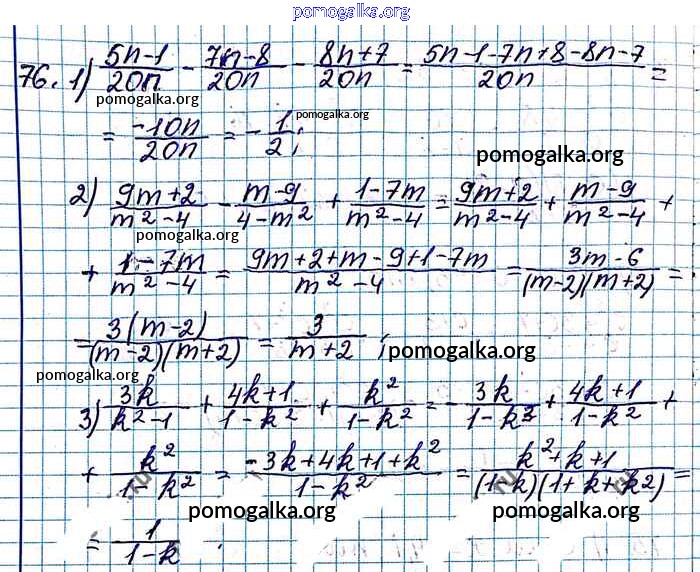 pomogalka.org
76. 1) (5n-1)/(20n) - (7n-8)/(20n) - (8n+7)/(20n) = (5n-1-7n+8-8n-7)/(20n) =
pomogalka.org
= (-10n)/(20n) = -1/2;
pomogalka.org
pomogalka.org
2) (9m+2)/(m²-4) - (m-9)/(4-m²) + (1-7m)/(m²-4) = (9m+2)/(m²-4) + (m-9)/(m²-4) +
pomogalka.org
+ (1-7m)/(m²-4) = (9m+2+m-9+1-7m)/(m²-4) = (3m-6)/((m-2)(m+2)) =
= (3(m-2))/((m-2)(m+2)) = 3/(m+2);
pomogalka.org
pomogalka.org
3) (3k)/(k²-1) + (4k+1)/(1-k²) + (k²)/(1-k²) = -(3k)/(1-k³) + (4k+1)/(1-k²) +
+ (k²)/(1-k²) = (-3k+4k+1+k²)/(1-k²) = (k²+k+1)/((1-k)(1+k+k²)) =
pomogalka.org
pomogalka.org
= 1/(1-k).